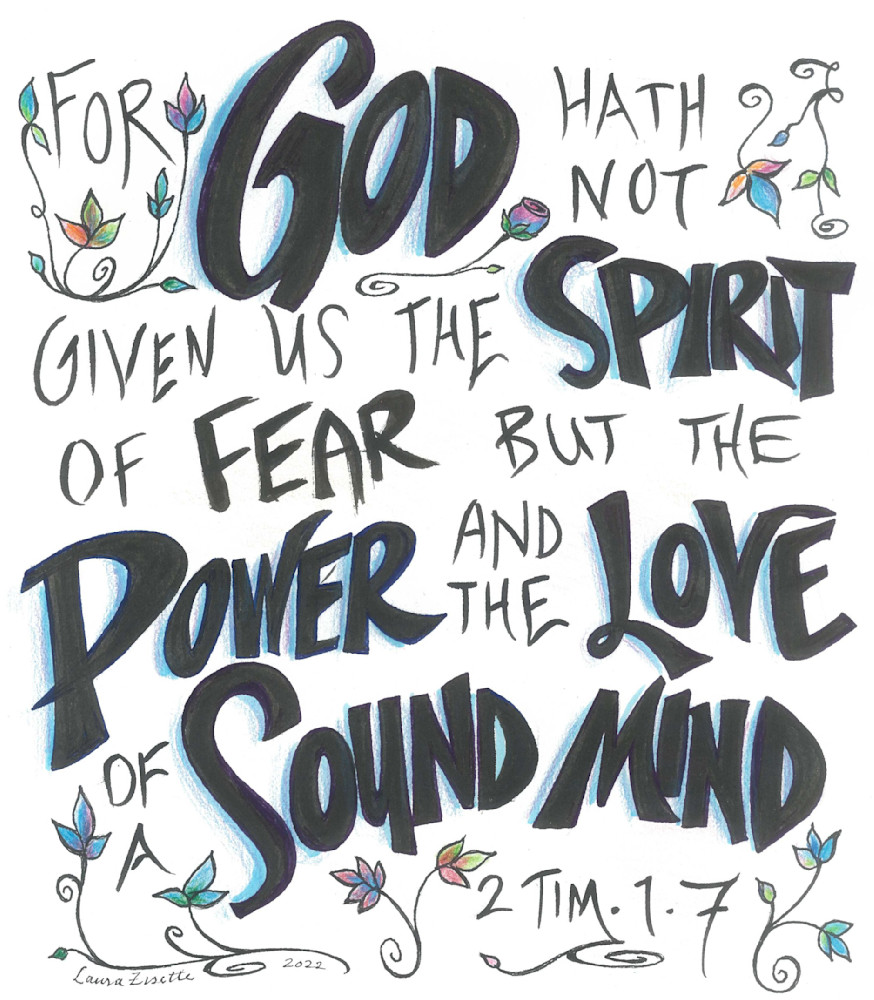 FOR GOD HATH
NOT
GIVEN US THE SPIRIT
OF FEAR BUT THE
POWER AND THE LOVE
OF A SOUND MIND
2 TIM. 1. 7
Laura Zisette 2022